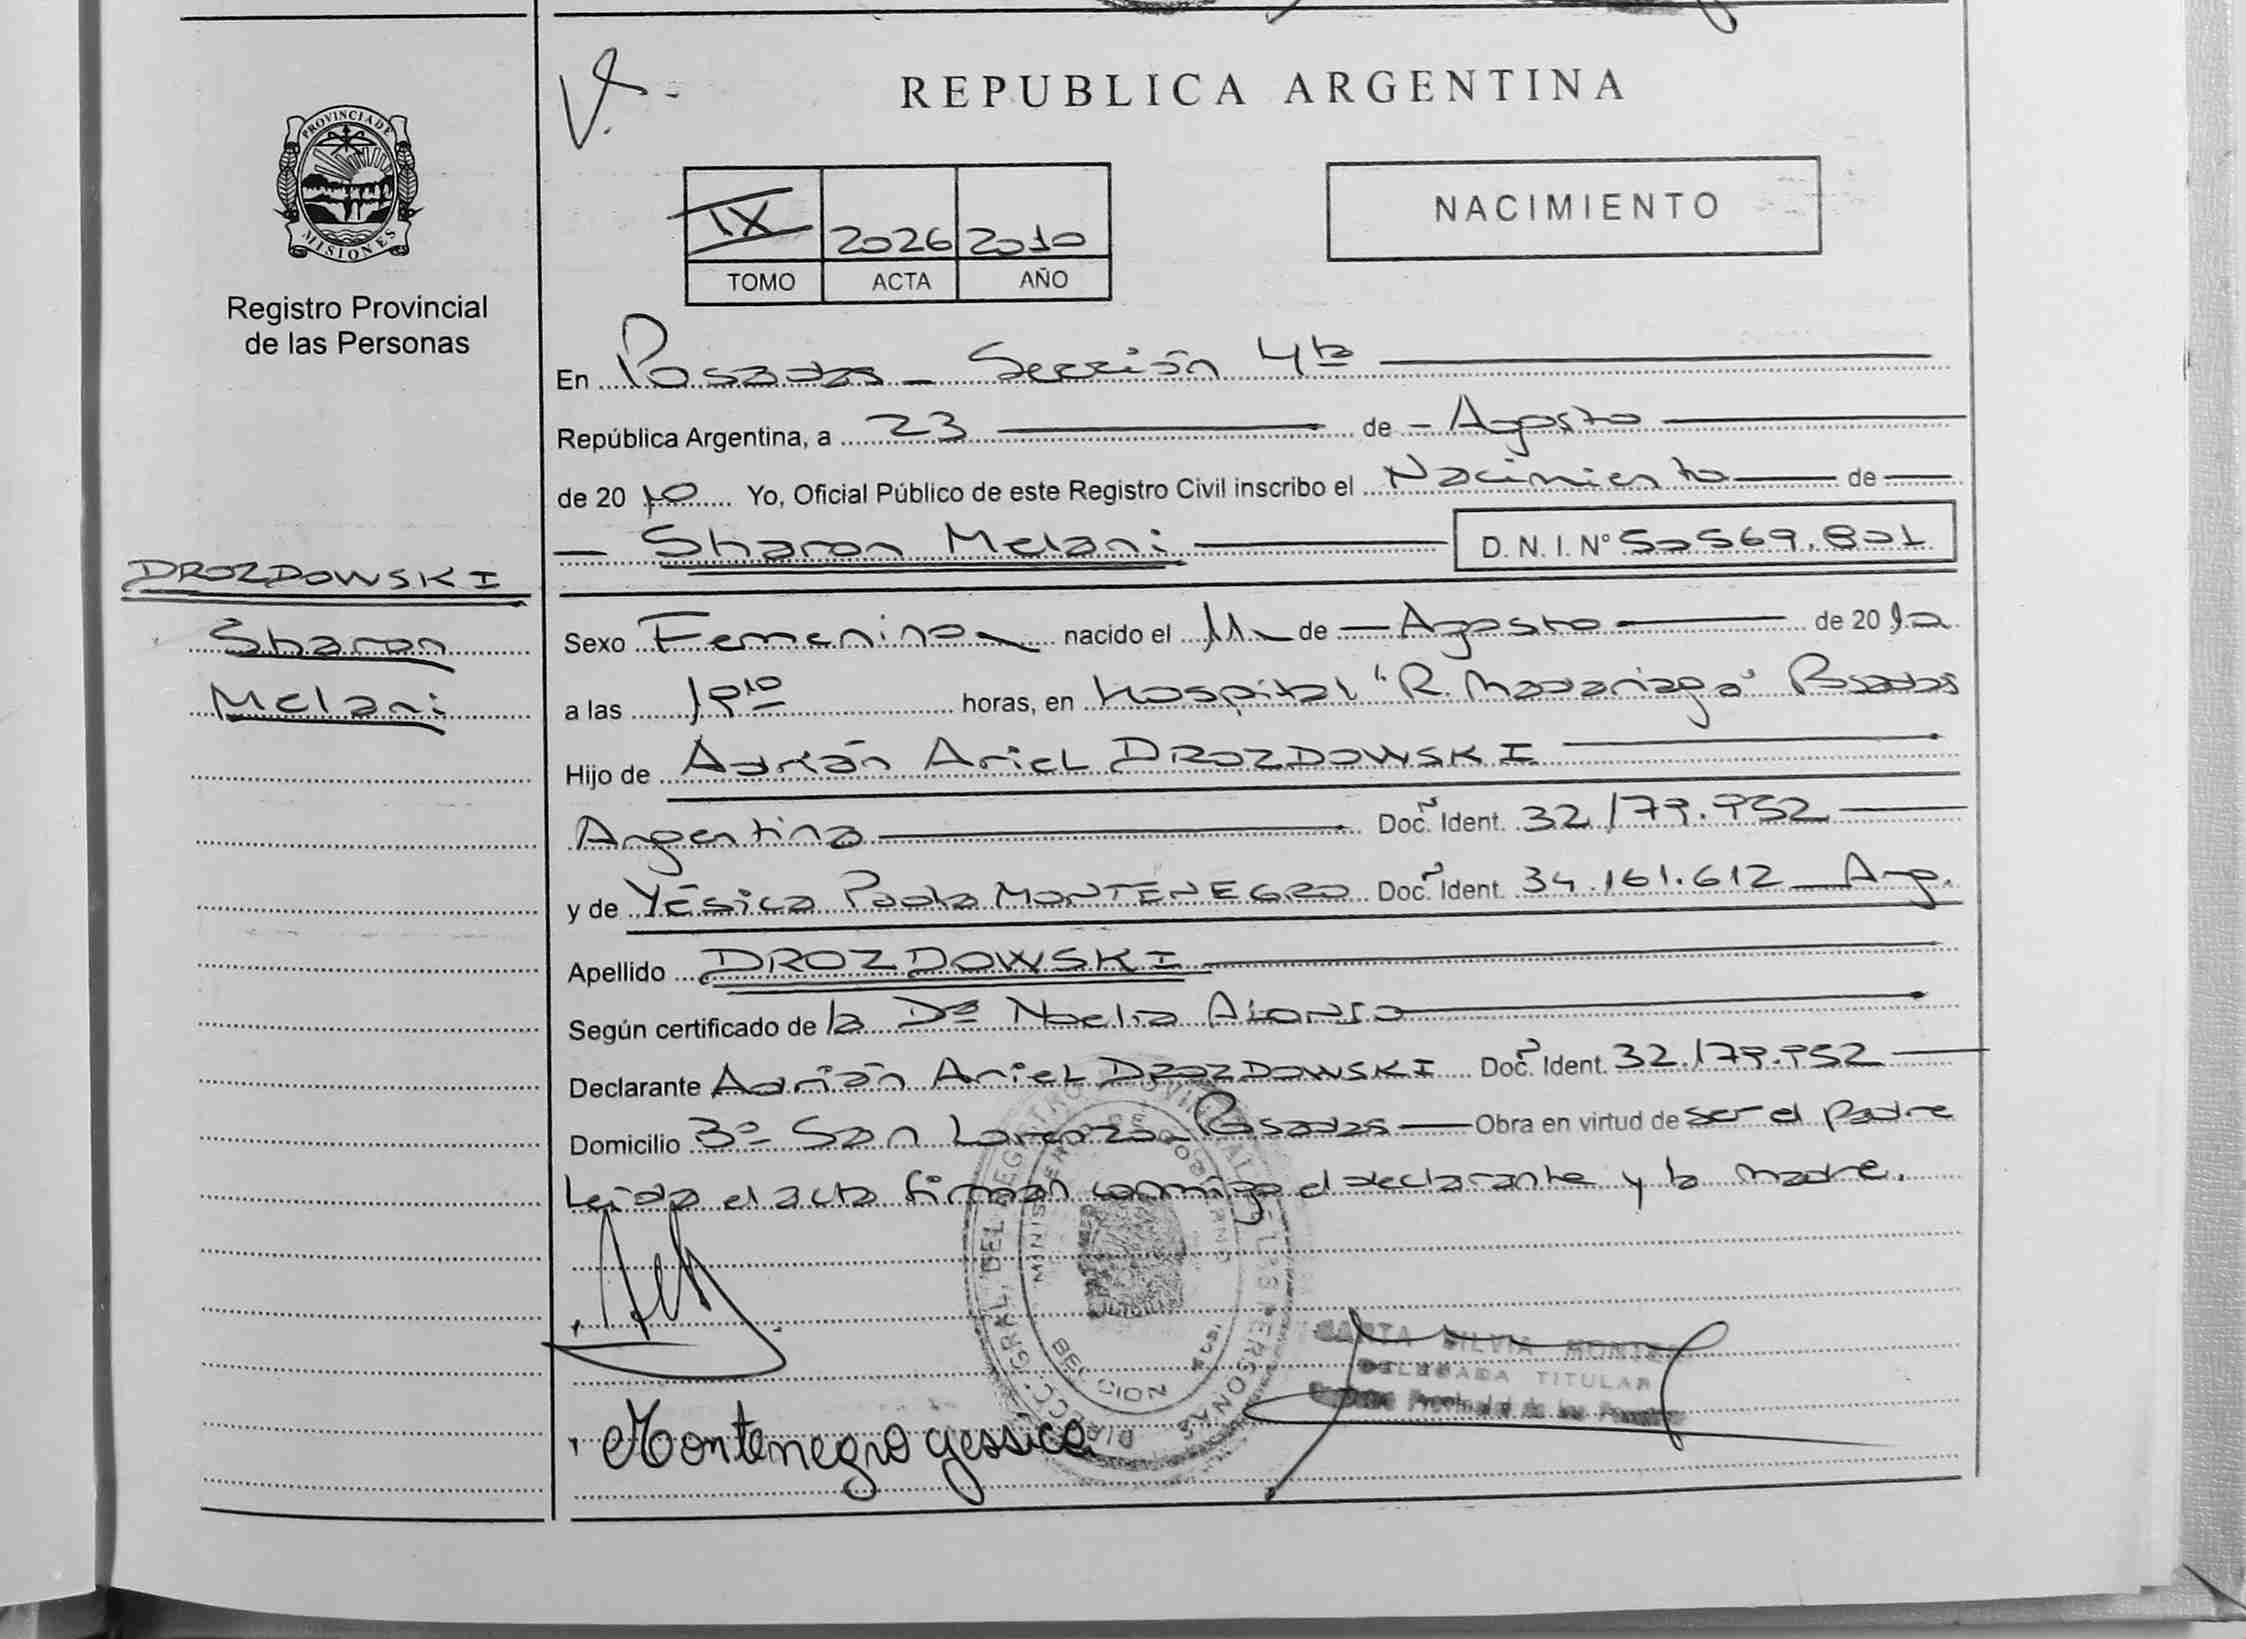 REPUBLICA ARGENTINA
PROVINCIA DE
MISIONES
Registro Provincial
de las Personas
IX 2026 2010
TOMO ACTA AÑO
NACIMIENTO
En Posadas - Sección 4ta
República Argentina, a 23 de - Agosto
de 2010 Yo, Oficial Público de este Registro Civil inscribo el Nacimiento de
- Sharon Melani D. N. I. Nº 50569.801
DROZDOWSKI
Sharon
Melani
Sexo Femenino nacido el 11 de - Agosto de 2010
a las horas, en Hospital "R. Madariaga" Posadas
Hijo de Adrián Ariel DROZDOWSKI
Argentina Doc. Ident. 32.179.952
y de Yésica Paola MONTENEGRO Doc. Ident. 34.161.612 - Arg.
Apellido DROZDOWSKI
Según certificado de la Dra Noelia Alonso
Declarante Adrián Ariel DROZDOWSKI Doc. Ident. 32.179.952
Domicilio Bº San Lorenzo - Posadas Obra en virtud de ser el Padre
Leída el acta firman conmigo el declarante y la madre.
SILVIA
DELEGADA TITULAR
Montenegro yessica